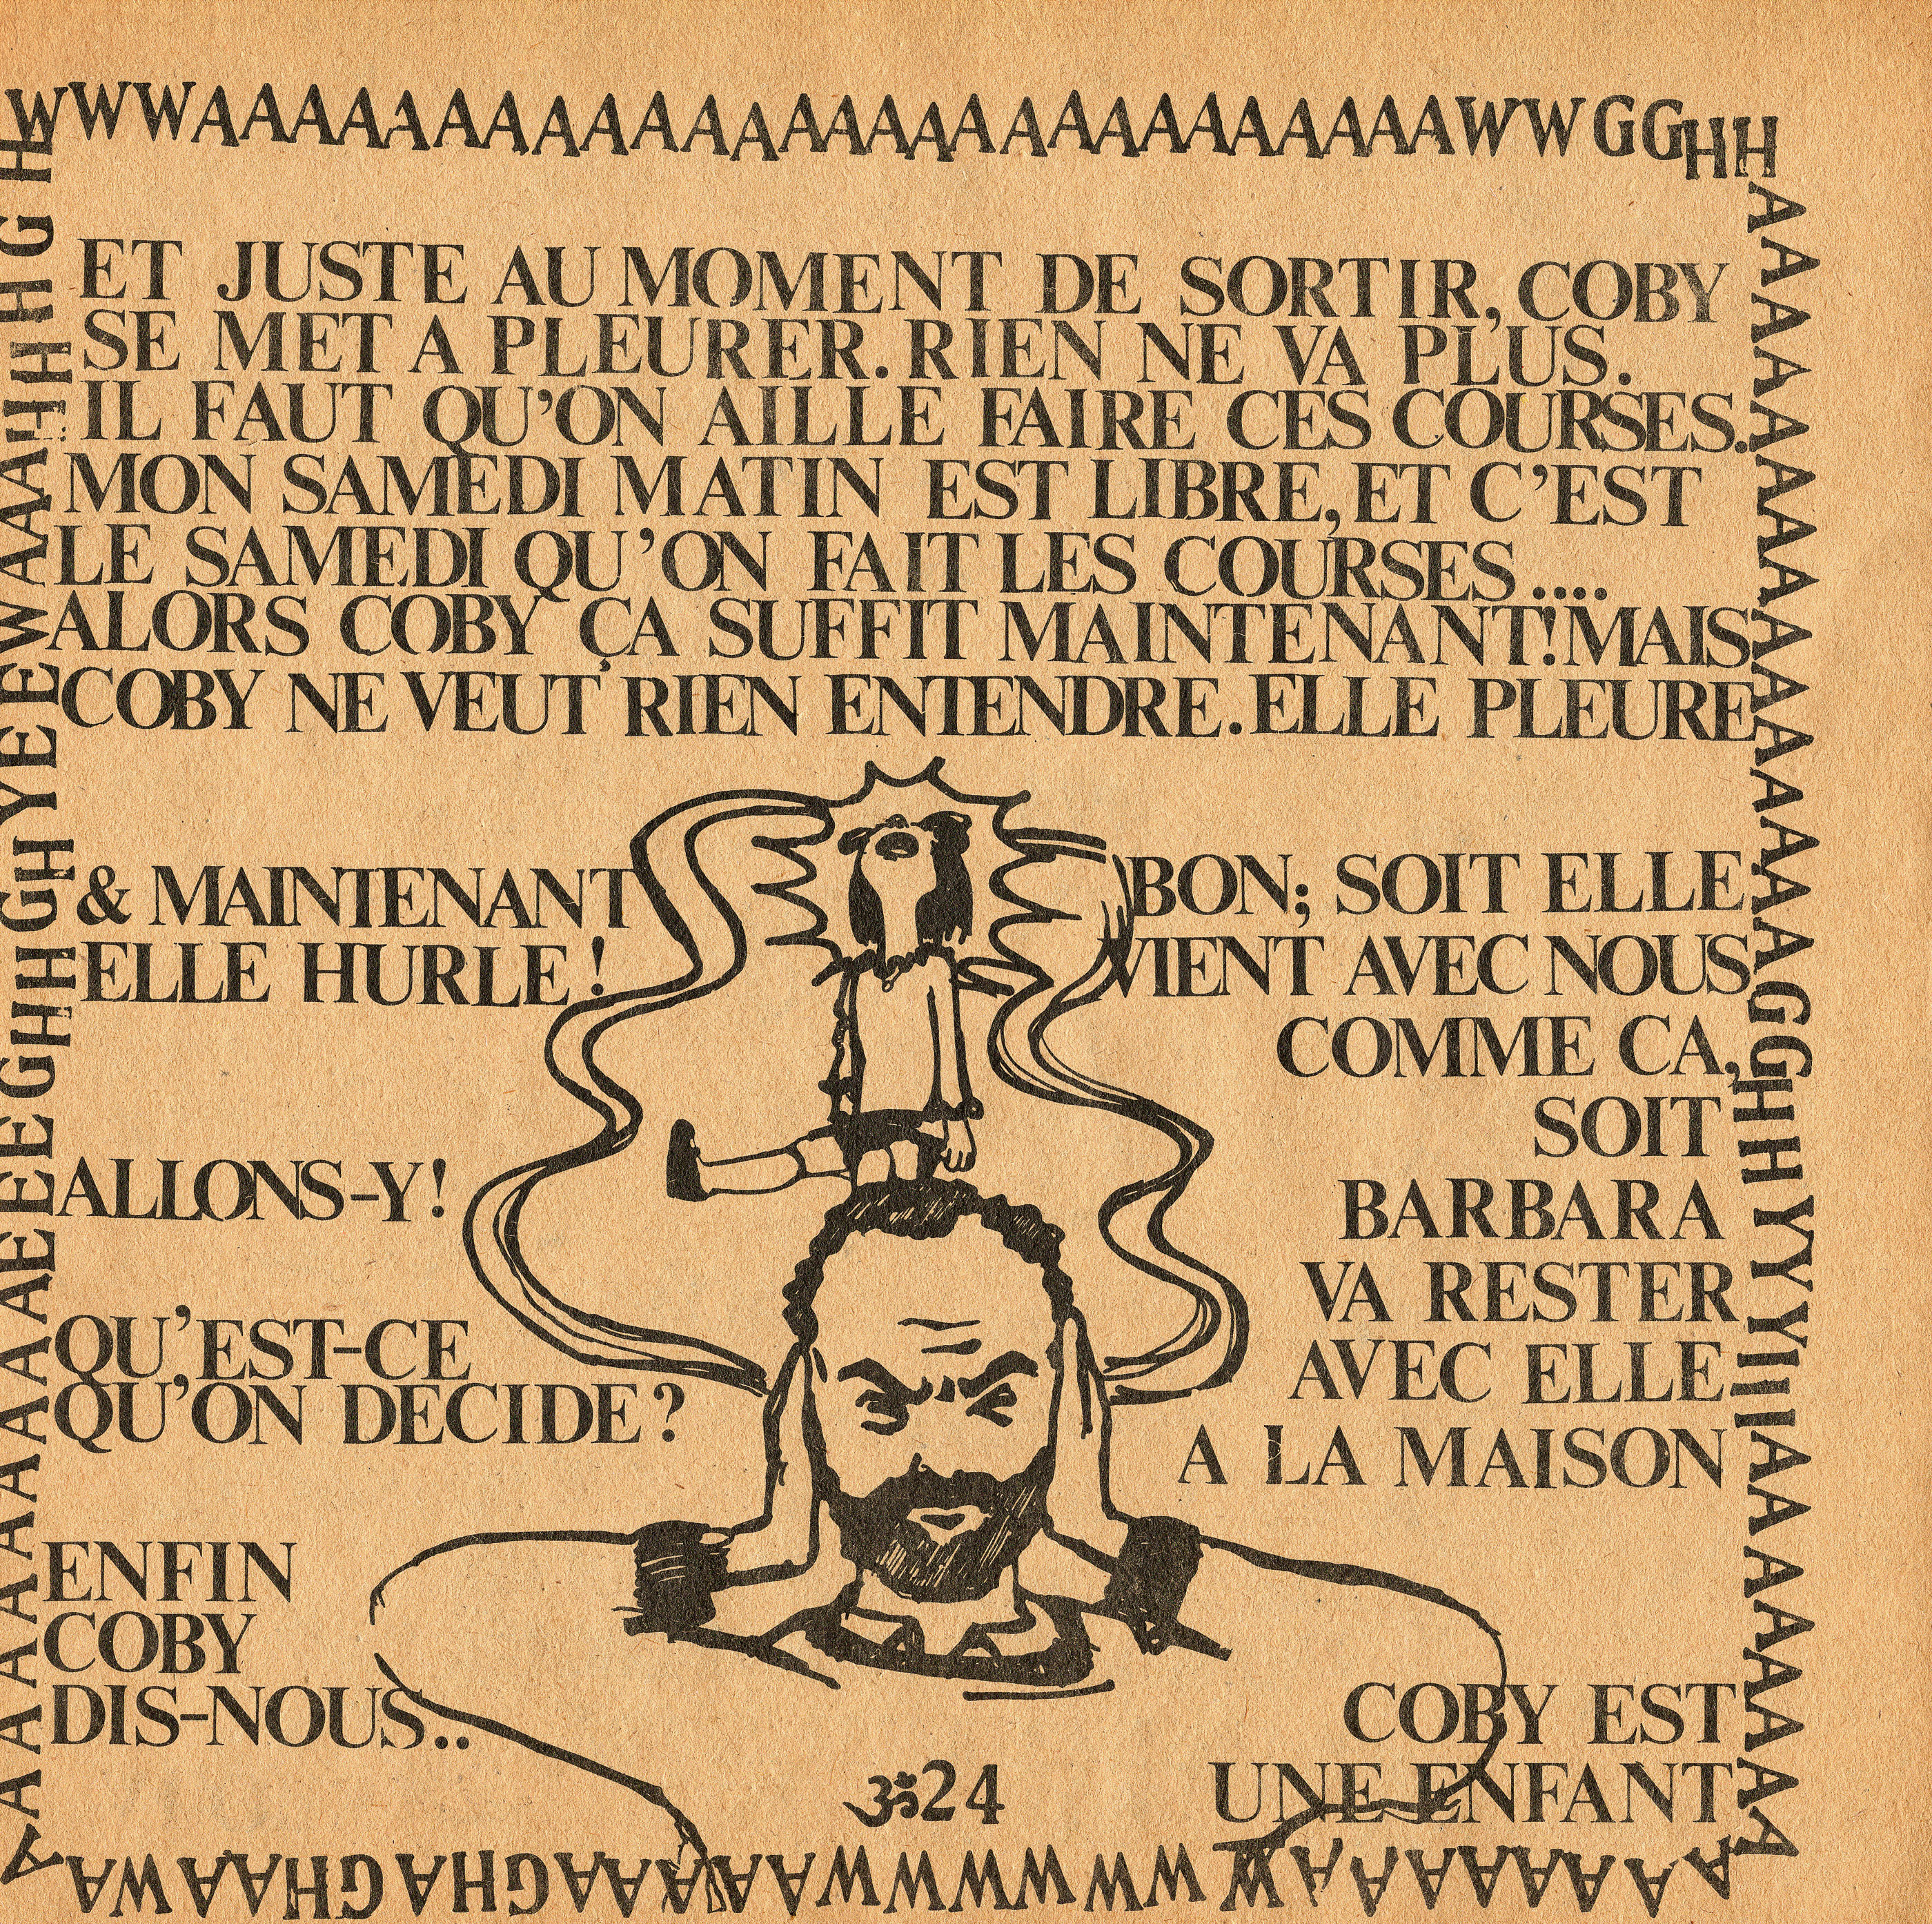 WWWAAAAAAAAAAAAAAAAAAAAAAAAAAWWGGHH
ET JUSTE AU MOMENT DE SORTIR, COBY
SE MET A PLEURER. RIEN NE VA PLUS.
IL FAUT QU'ON AILLE FAIRE CES COURSES.
MON SAMEDI MATIN EST LIBRE, ET C'EST
LE SAMEDI QU'ON FAIT LES COURSES....
ALORS COBY ÇA SUFFIT MAINTENANT! MAIS
COBY NE VEUT RIEN ENTENDRE. ELLE PLEURE
& MAINTENANT
ELLE HURLE!
BON; SOIT ELLE
VIENT AVEC NOUS
COMME CA,
SOIT
BARBARA
VA RESTER
AVEC ELLE
A LA MAISON
ALLONS-Y!
QU'EST-CE
QU'ON DECIDE?
ENFIN
COBY
DIS-NOUS..
COBY EST
UNE ENFANT
ॐ24